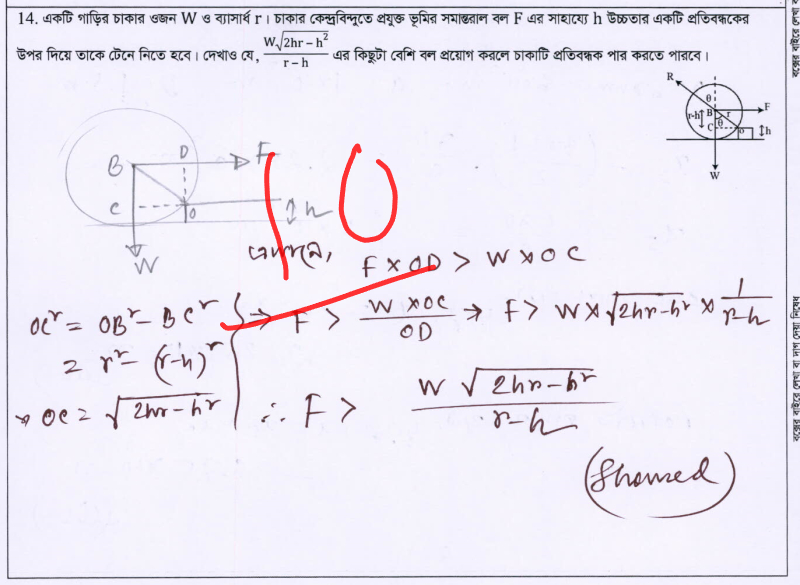 14. একটি গাড়ির চাকার ওজন W ও ব্যাসার্ধ r । চাকার কেন্দ্রবিন্দুতে প্রযুক্ত ভূমির সমান্তরাল বল F এর সাহায্যে h উচ্চতার একটি প্রতিবন্ধকের
উপর দিয়ে তাকে টেনে নিতে হবে। দেখাও যে, W√(2hr – h²) / (r – h) এর কিছুটা বেশি বল প্রয়োগ করলে চাকাটি প্রতিবন্ধক পার করতে পারবে।
R θ F
r-h B r
C θ o h
W
B D F
C O h
W
10
এখানে, F × OD > W × OC
OC² = OB² – BC² → F > W × OC / OD → F > W × √(2hr – h²) × 1 / (r – h)
= r² – (r – h)²
→ OC = √(2hr – h²) ∴ F > W √(2hr – h²) / (r – h)
(Showed)
বক্সের বাইরে লেখা বা দাগ দেয়া নিষেধ